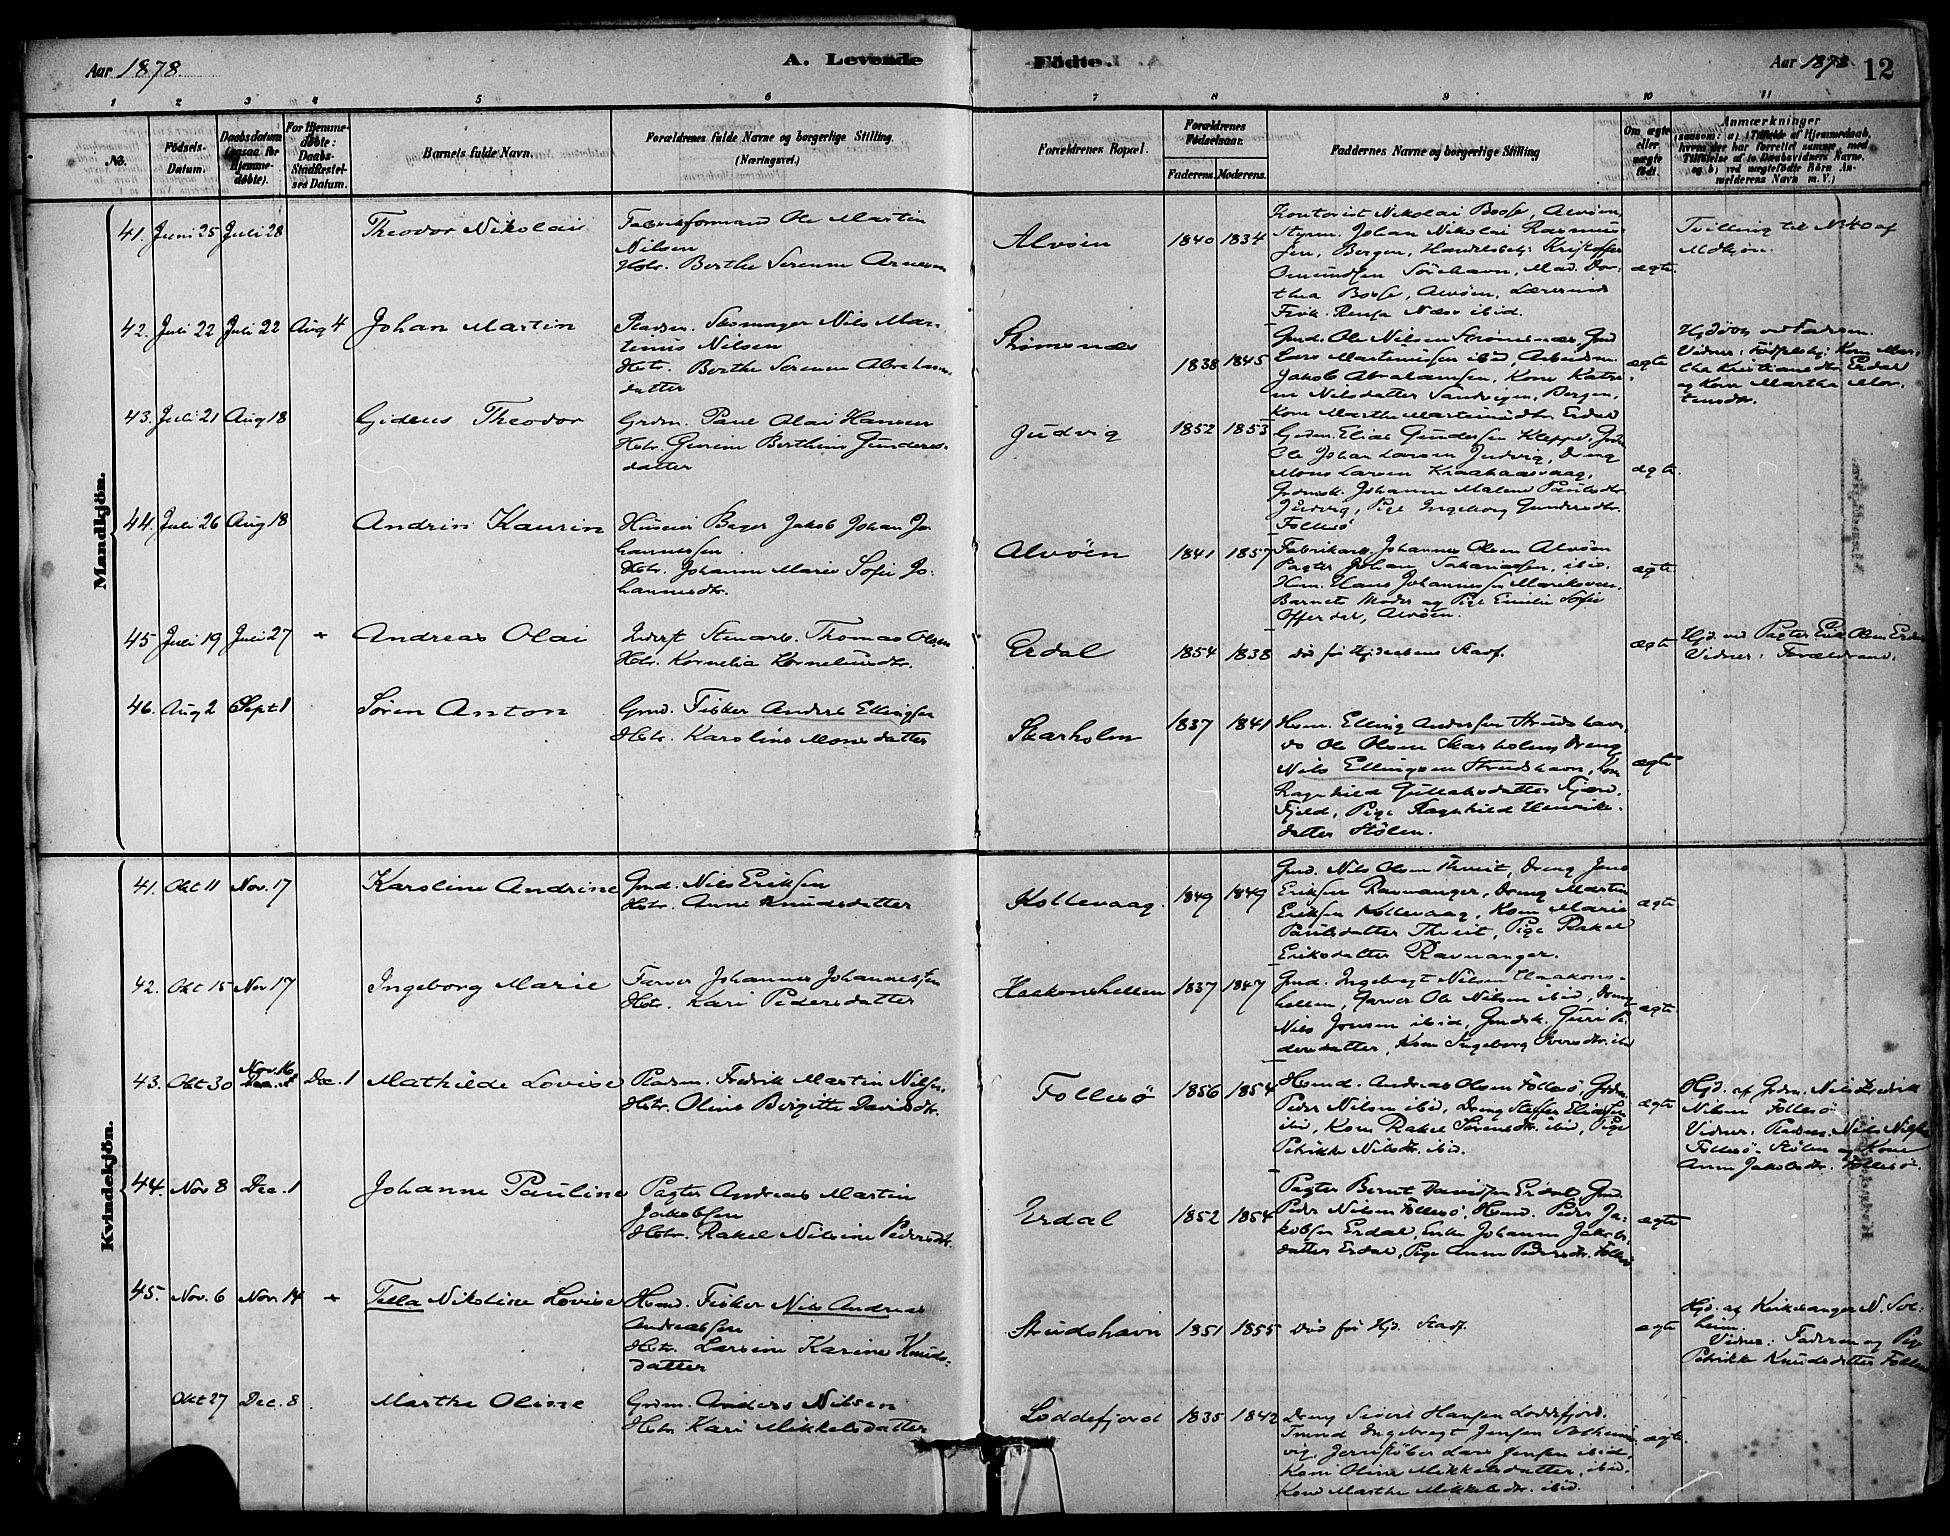 Aar 1878
A. Levende Födte.
Aar 1878 12
1 2 3 4 5 6 7 8 9 10 11
No.
Fødsels-
Datum.
Daabsdatum
(ogsaa for
Hjemme-
døbte).
For Hjemme-
døbte:
Daabs-
Stadfæstel-
ses Datum.
Barnets fulde Navn.
Forældrenes fulde Navne og borgerlige Stilling.
(Næringsvei.)
Forældrenes Bopæl.
Forældrenes
Fødselsaar.
Faderens. Moderens.
Faddernes Navne og borgerlige Stilling
Om ægte
eller
uægte
født.
Anmærkninger
Mandkjön.
41. Juni 25 Juli 28 Theodor Nikolai
Fabrikformand Ole Martin
Nilsen
Hstr. Berthe Serene Arnesen
Alvøen 1840 1834
Kontorist Nikolai Boose, Alvøen,
Styrm. Johan Nikolai Rasmus-
sen, Bergen, Handelsbetj. Kristoffer
Omundsen Sørehavn, Mad. Dor-
thea Boose, Alvøen, Lærerinde
ibid.
ægte
Tvilling til No 40 af
Mdkjøn.
42. Juli 22 Juli 22 Aug 4 Johan Martin
Pladsm. Skomager Nils Mar-
tinus Nilsen
Hstr. Berthe Serene Abraham-
datter
Strømsnæs 1838 1845
Gmd. Ole Nilsen Strømsnæs, Gmd
Lars Martinussen ibid, Arbeidsm.
Jakob Abrahamsen, Kone Katri-
ne Nilsdatter Sandvigen, Bergen,
Kone Marthe Martinusdtr. Erdal
ægte
Hjdøbt ved Faderen.
Vidner: Fødselshj. Kone Mar-
tha Kristiansdtr. Erdal
og Kone Martha Mor-
tensdtr.
43. Juli 21 Aug 18 Gideus Theodor
Grdm. Paul Olai Hansen
Hstr. Gurine Berthine Gunders-
datter
Judvig 1852 1853
Grdm. Elias Gundersen Kleppe, Grdm
Ole Johan Larsen Judvig, Dreng
Mons Larsen Kraahaasvaag,
Grdmsk. Johanne Malene Paulsdtr.
Judvig, Pige Ingeborg Gundersdtr.
Follesø
ægte.
44. Juli 26 Aug 18 Andrin Kaurin
Huseier Bager Jakob Johan Jo-
hannessen
Hstr. Johanne Marie Sofie Jo-
hannesdtr.
Alvøen 1841 1857
Fabrikarb. Johannes Olsen Alvøen
Pagter Johan Sakariassen, ibid.
Hsm. Hans Johannessen
Barnets Moder og Pige Emilie Sofie
Offerdal, Alvøen.
ægte.
45 Juli 19 Juli 27 + Andreas Olai
Inderst Stenarb. Thomas Olsen
Hstr. Kornelia Korneliusdtr.
Erdal 1854 1838
Død før Hjdaabens Stadf.
ægte
Hjd. ved Pagter Erik Olsen Erdal
Vidner: Forældrene.
46. Aug 2 Sept 1 Søren Anton
Grmd. Fisker Anders Ellingsen
Hstr. Karoline Monsdatter
Skarholm 1837 1841
Hsm. Elling Andersen Strudshavn,
do Ole Olsen Skarholm, Dreng
Nils Ellingsen Strudshavn, Kone
Ragnhild Gullaksdatter
Fjeld, Pige Ragnhild Henriks-
datter Stølen.
ægte
Kvindekjön.
41. Okt 11 Nov. 17 Karoline Andrine
Gmd. Nils Eriksen
Hstr. Anne Knudsdatter
Kollevaag. 1849 1849
Gmd. Nils Olsen Thveit, Dreng Jens
Eriksen Ravnanger, Dreng Martin
Eriksen Kollevaag, Kone Marie
Paulsdatter Thveit, Pige Rakel
Eriksdatter Ravnanger.
ægte
42. Okt 15 Nov 17 Ingeborg Marie
Farver Johannes Johannessen
Hstr. Kari Pedersdatter
Haakonshellen 1837 1847
Gmd. Ingebregt Nilsen Haakons-
hellen, Garver Ole Nilsen ibid, Dreng
Nils Jonsen ibid, Gmdsk. Guri Pe-
dersdatter, Kone Ingeborg ibid
ægte.
43. Okt 30 Nov. 16 Dec. 1 Mathilde Lovise
Pladsm. Fredrik Martin Nilsen
Hstr. Oline Birgitte Davidsdtr.
Follesø 1856 1854
Hsmd. Andreas Olsen Follesø, Grdm.
Peder Nilsen ibid, Dreng Steffen Eliassen
ibid, Kone Rakel Sørensdtr. ibid, Pige
Petrikke Nilsdtr. ibid.
ægte
Hjd. af Grdm. Nils Fredrik
Nilsen Follesø
Vidner: Pladsm. Nils Nilsen
Follesø-Stølen og Kone
Anne Jakobsdtr. Follesø.
44. Nov 8 Dec. 1 Johanne Pauline
Pagter Andreas Martin
Jakobsen
Hstr. Rakel Nilsine Pedersdtr.
Erdal 1852 1854
Pagter Bernt Davidsen Erdal, Gmd.
Peder Nilsen Follesø, Hsmd. Peder Ja-
kobsen Erdal, Enke Johanne Jakobs-
datter Erdal, Pige Anne Pedersdtr. Follesø
ægte
45. Nov. 6 Nov. 14 + Tella Nikoline Lovise
Hsmd. Fisker Nils Andreas
Andreassen
Hstr. Larsine Karine Knuds-
datter
Strudshavn 1851 1855 Død før Hjd. Stadf.
ægte
Hjd. af Kirkesanger N. Sol-
heim.
Vidner: Faderen og Pige
Petrikke Knudsdatter Follesø
Okt 27 Dec. 8. Marthe Oline
Grdm. Anders Nilsen
Hstr Kari Mikkelsdatter
Loddefjord 1835 1842
Dreng Sivert Hansen Loddefjord.
Ingebregt Jensen Solheims-
vig, Jernstøber Lars Jensen ibid,
Kone Oline Mikkelsdatter, ibid.
Kone Marthe Mikkelsdtr. ibid.
ægte.